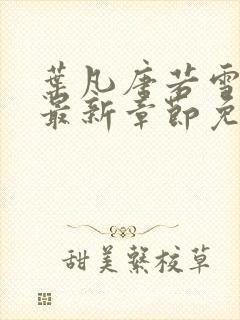 葉凡唐若雪
最新章節免
甜美繫校草